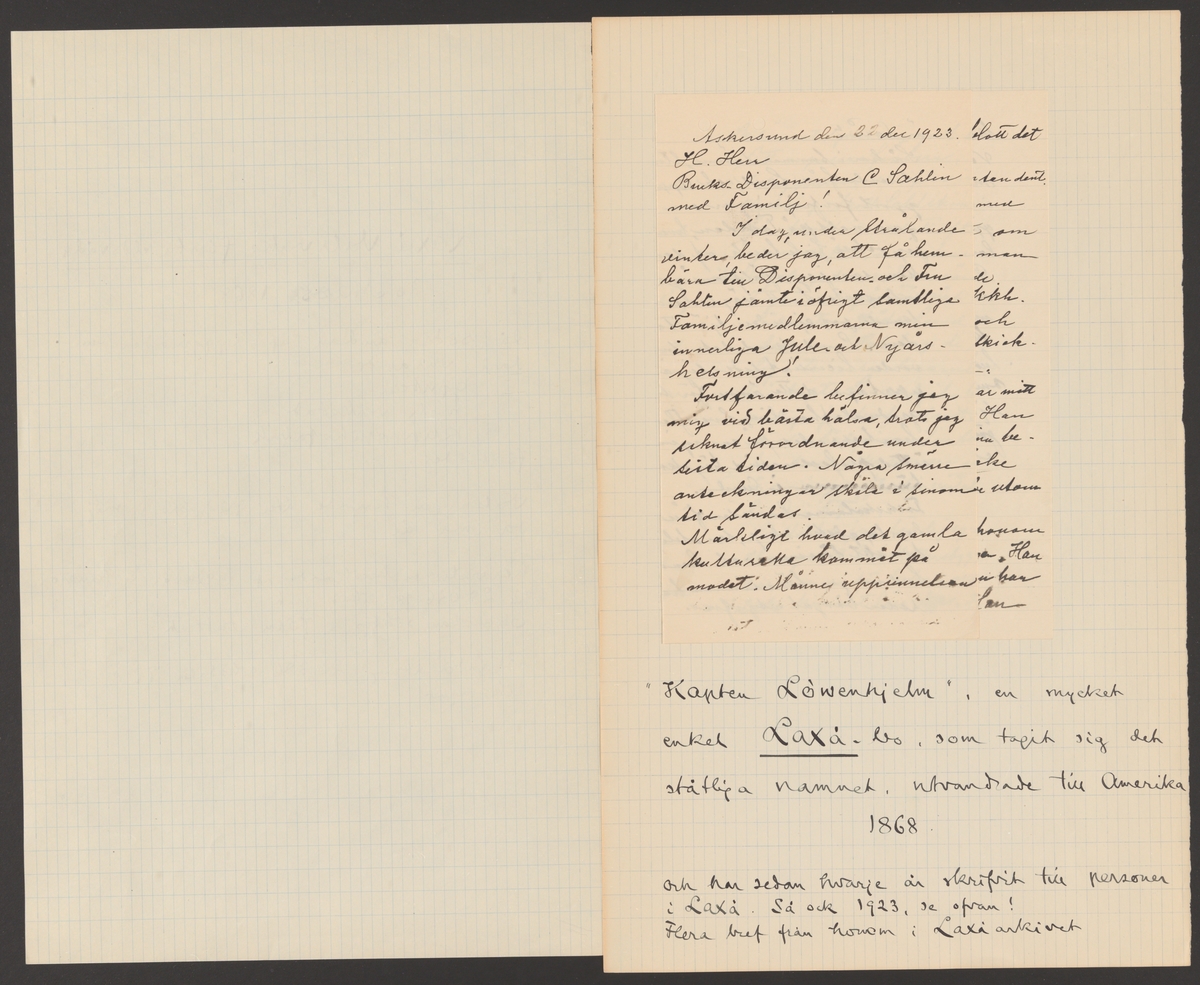 Askersund den 22 dec 1923.
H. Herr
Bruks-Disponenten C Sahlin
med Familj!
I dag, under strålande
vinters, beder jag, att få hem-
bära till Disponenten och Fru
Sahlin jämte i öfrigt samtliga
Familjemedlemmarna min
innerliga Jule- och Nyårs-
helsning!
Fortfarande befinner jag
mig vid bästa hälsa, trots jag
saknat förordnande under
sista tiden. Några smärre
anteckningar skola i sinom
tid sändas.
Märkligt hvad det gamla
kulturella kommit på
modet. Månne uppfinnelsen
slott det
dent.
med
om
man
de
och
skick-
är mitt
Han
nu be-
cke
utom
honom
Han
har
"Kapten Löwenhjelm", en mycket
enkel Laxå-bo, som tagit sig det
ståtliga namnet, utvandrade till Amerika
1868
och har sedan hvarje år skrifvit till personer
i Laxå. Så ock 1923, se ofvan!
Flera bref från honom i Laxå arkivet